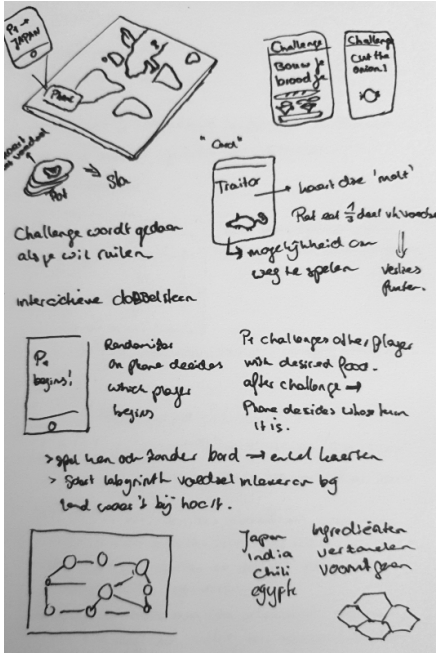 P1 →
JAPAN
Challenge
Bouw je
broodje
Challenge
cut the
onion!
Phone
voedsel
→ Sla
"Card"
Traitor
→ kaart die 'molt'
Rat eat 1/3 deel vh voedsel
↳ mogelijkheid om
weg te spelen
verlies
punten.
Challenge wordt gedaan
als je wil ruilen
interactieve dobbelsteen
P1
begins!
Randomizer
on phone decides
which player
begins
P1 challenges other player
with desired food.
after challenge →
Phone decides whose turn
it is.
> spel kan ook zonder bord → enkel kaarten
> soort labyrinth voedsel inleveren bij
land waar 't bij hoort.
Japan
india
Chili
egypte
ingrediënten
verzamelen